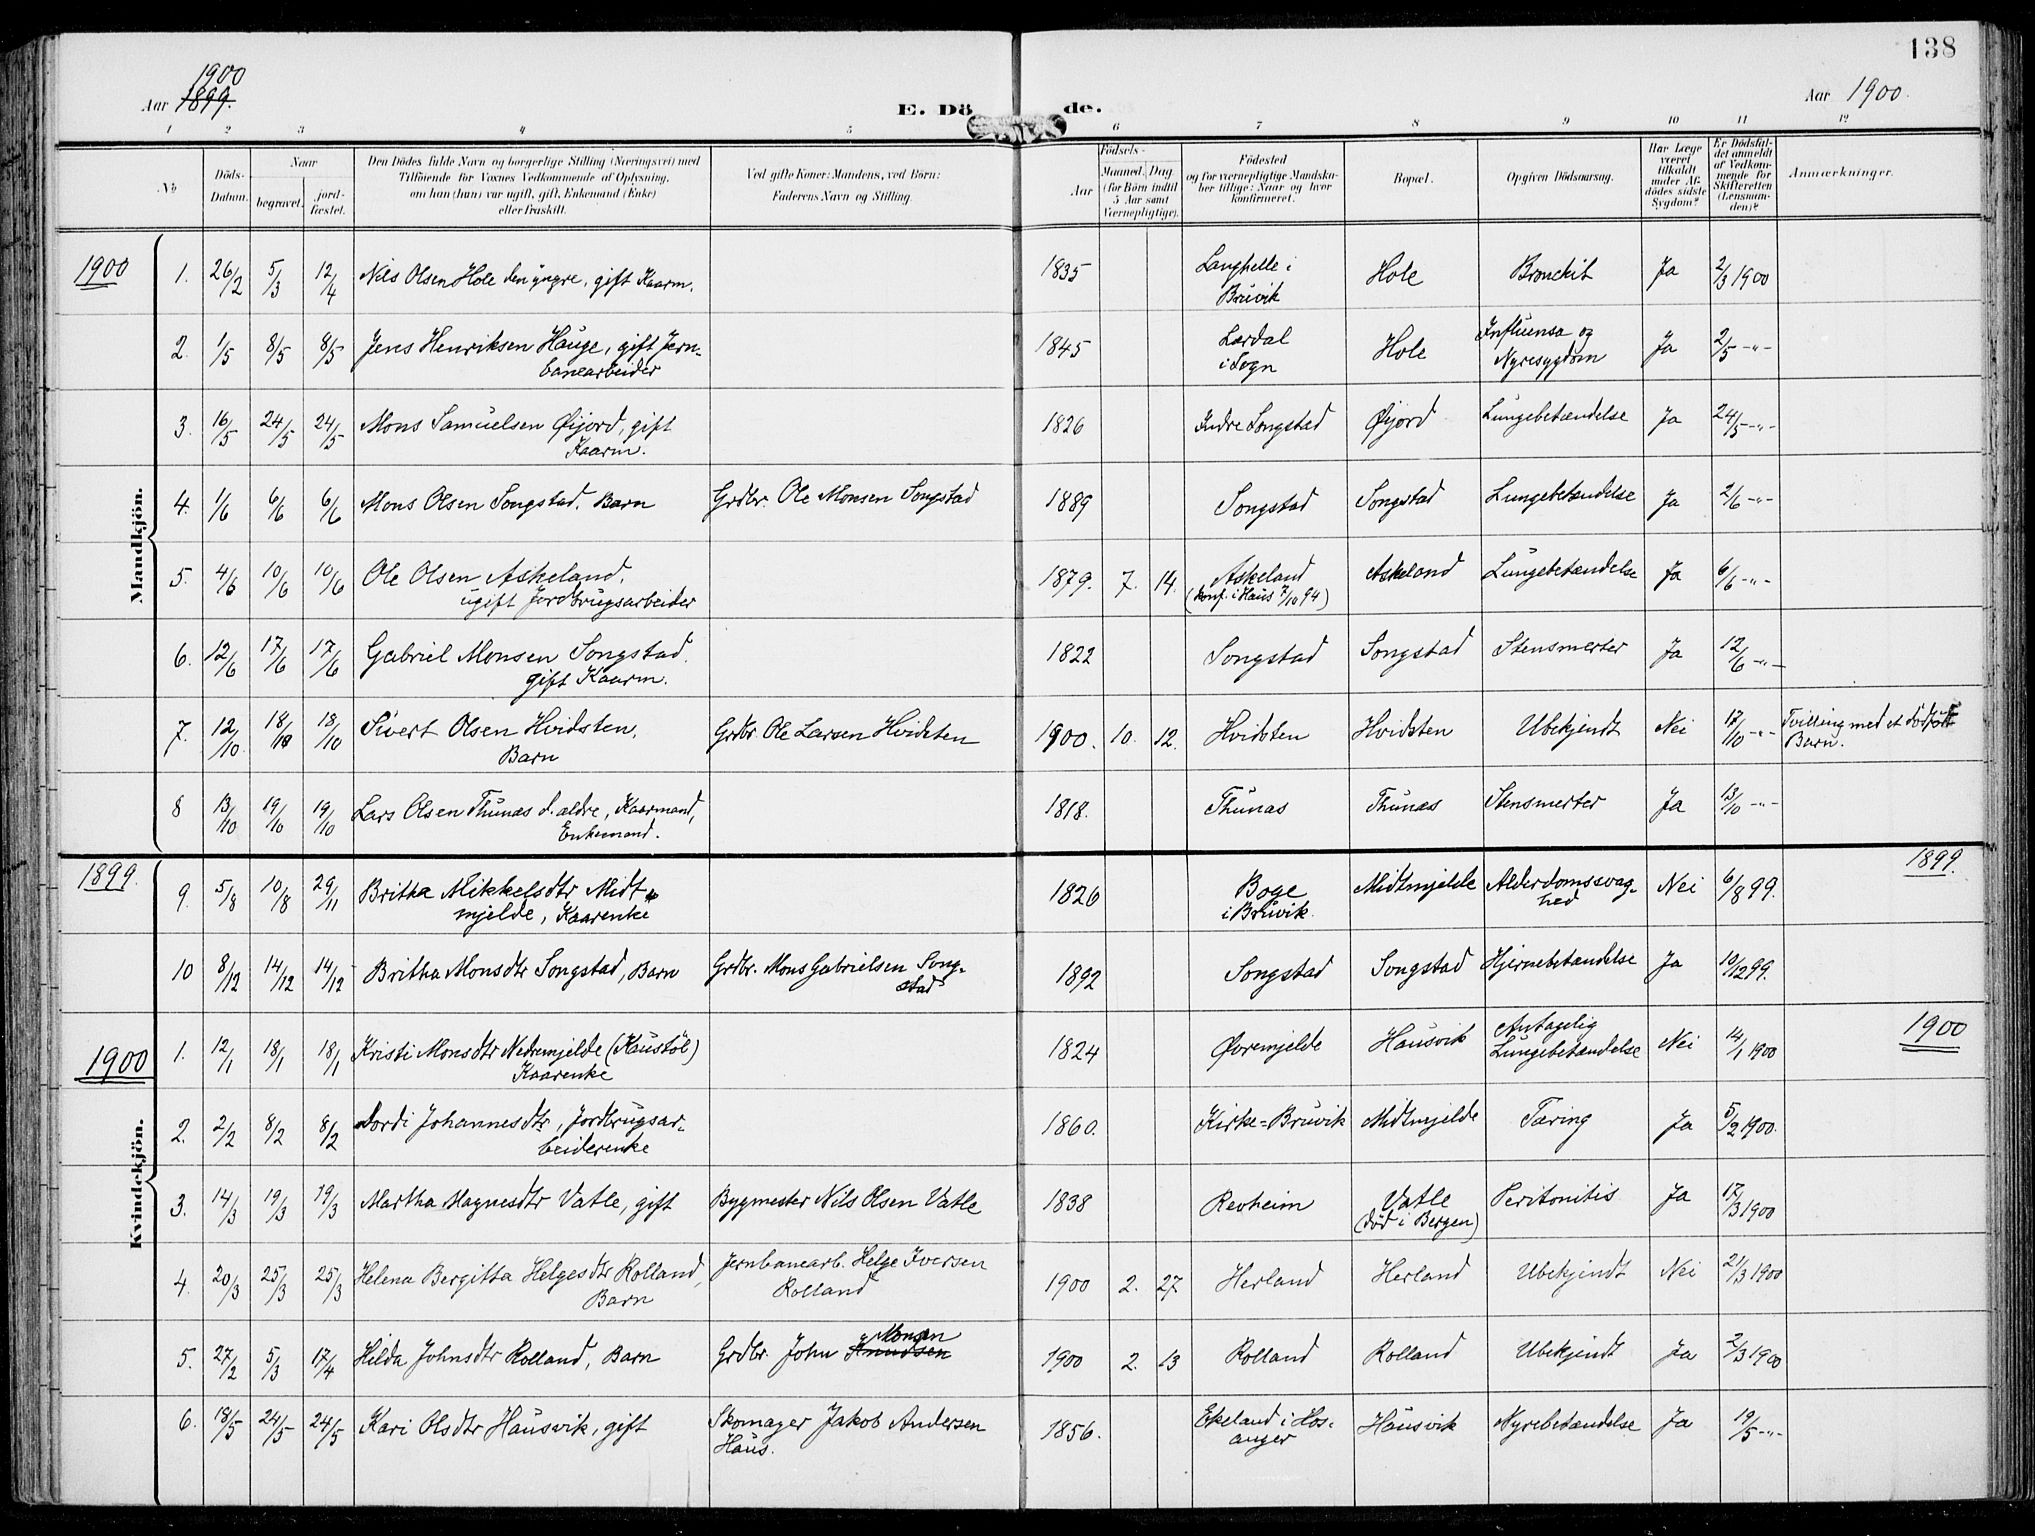 138
1900
Aar 1899.
E. Dö de.
Aar 1900.
1 2 3 4 5 6 7 8 9 10 11 12
No
Döds-Datum.
Naar
begravet.
jord-fæstet.
Den Dödes fulde Navn og borgerlige Stilling (Næringsvei) med
Tilföiende for Voxnes Vedkommende af Oplysning,
om han (hun) var ugift, gift, Enkemand (Enke)
eller fraskilt.
Ved gifte Koner: Mandens, ved Börn:
Faderens Navn og Stilling.
Födsels-
Aar
Maaned. Dag.
(for Börn indtil
5 Aar samt
Værnepligtige).
Födested
og for værnepligtige Mandska-
ber tillige: Naar og hvor
konfirmeret.
Bopæl.
Opgiven Dödsaarsag.
Har Læge
været
tilkaldt
under Af-
dödes sidste
Sygdom?
Er Dödsfal-
det anmeldt
af Vedkom-
mende for
Skifteretten
(Lensman-
den)?
Anmærkninger.
Mandkjön.
1900 1. 26/2 5/3 12/4 Nils Olsen Hole den yngre, gift Kaarm. 1835 Langhelle i Bruvik Hole Bronckit Ja 2/3 1900
2. 1/5 8/5 8/5 Jens Henriksen Hauge, gift Jern-
banearbeider 1845 Lærdal i Sogn Hole Influensa og Nyresygdom Ja 2/5 -"-
3. 16/5 24/5 24/5 Mons Samuelsen Øijord, gift
Kaarm. 1826 Indre Songstad Øijord Lungebetændelse Ja 24/5 -"-
4. 1/6 6/6 6/6 Mons Olsen Songstad. Barn Grdbr. Ole Monsen Songstad 1889 Songstad Songstad Lungebetændelse Ja 2/6 -"-
5. 4/6 10/6 10/6 Ole Olsen Askeland,
ugift Jordbrugsarbeider 1879. 7. 14. Askeland
(konf. i Haus 7/10 94) Askeland Lungebetændelse Ja 6/6 -"-
6. 12/6 17/6 17/6 Gabriel Monsen Songstad.
gift Kaarm. 1822 Songstad Songstad Stensmerter Ja 12/6 -"-
7. 12/10. 18/10 18/10 Sivert Olsen Hvidsten,
Barn Grdbr. Ole Larsen Hvidsten 1900. 10. 12. Hvidsten Hvidsten Ubekjendt Nei 17/10 -"- Tvilling med et dødfødt
Barn.
8 13/10 19/10 19/10 Lars Olsen Thunæs d. ældre, Kaarmand,
Enkemand. 1818. Thunæs Thunæs Stensmerter Ja 13/10 -"-
Kvindekjön.
1899. 9. 5/8 10/8 29/11 Britha Mikkelsdtr Midt-
mjelde, Kaarenke 1826 Boge
i Bruvik. Midtmjelde Alderdomssvag-
hed Nei 6/8 99. 1899.
10 8/12 14/12 14/12 Britha Monsdtr Songstad, Barn Grdbr. Mons Gabrielsen Song-
stad 1892 Songstad Songstad Hjernebetændelse Ja 10/12 99.
1900 1. 12/1 18/1 18/1 Kristi Monsdtr Nedremjelde (Kaustøl)
Kaarenke 1824 Øvremjelde Hausvik Antagelig
Lungebetændelse Nei 14/1 1900 1900
2. 2/2 8/2 8/2 Dordi Johannesdtr, Jordbrugsar-
beiderenke 1860. Kirke=Bruvik Midtmjelde Tæring Ja 5/2 1900.
3. 14/3 19/3 19/3 Martha Magnesdtr Vatle, gift Bygmester Nils Olsen Vatle 1838 Revheim Vatle
(død i Bergen) Peritonitis Ja 17/3 1900
4. 20/3 25/3 25/3 Helena Bergitta Helgesdtr Rolland,
Barn Jernbanearb. Helge Iversen
Rolland 1900 2. 27 Herland Herland Ubekjendt Nei 21/3 1900
5. 27/2 5/3 17/4 Hilda Johnsdtr Rolland, Barn Grdbr. John Knudsen Monsen 1900 2. 13 Rolland Rolland Ubekjendt Ja 2/3 1900
6. 18/5 24/5 24/5 Kari Olsdtr Hausvik, gift Skomager Jakob Andersen
Haus. 1856. Ekeland i Hos-
anger Hausvik Nyrebetændelse Ja 19/5 -"-